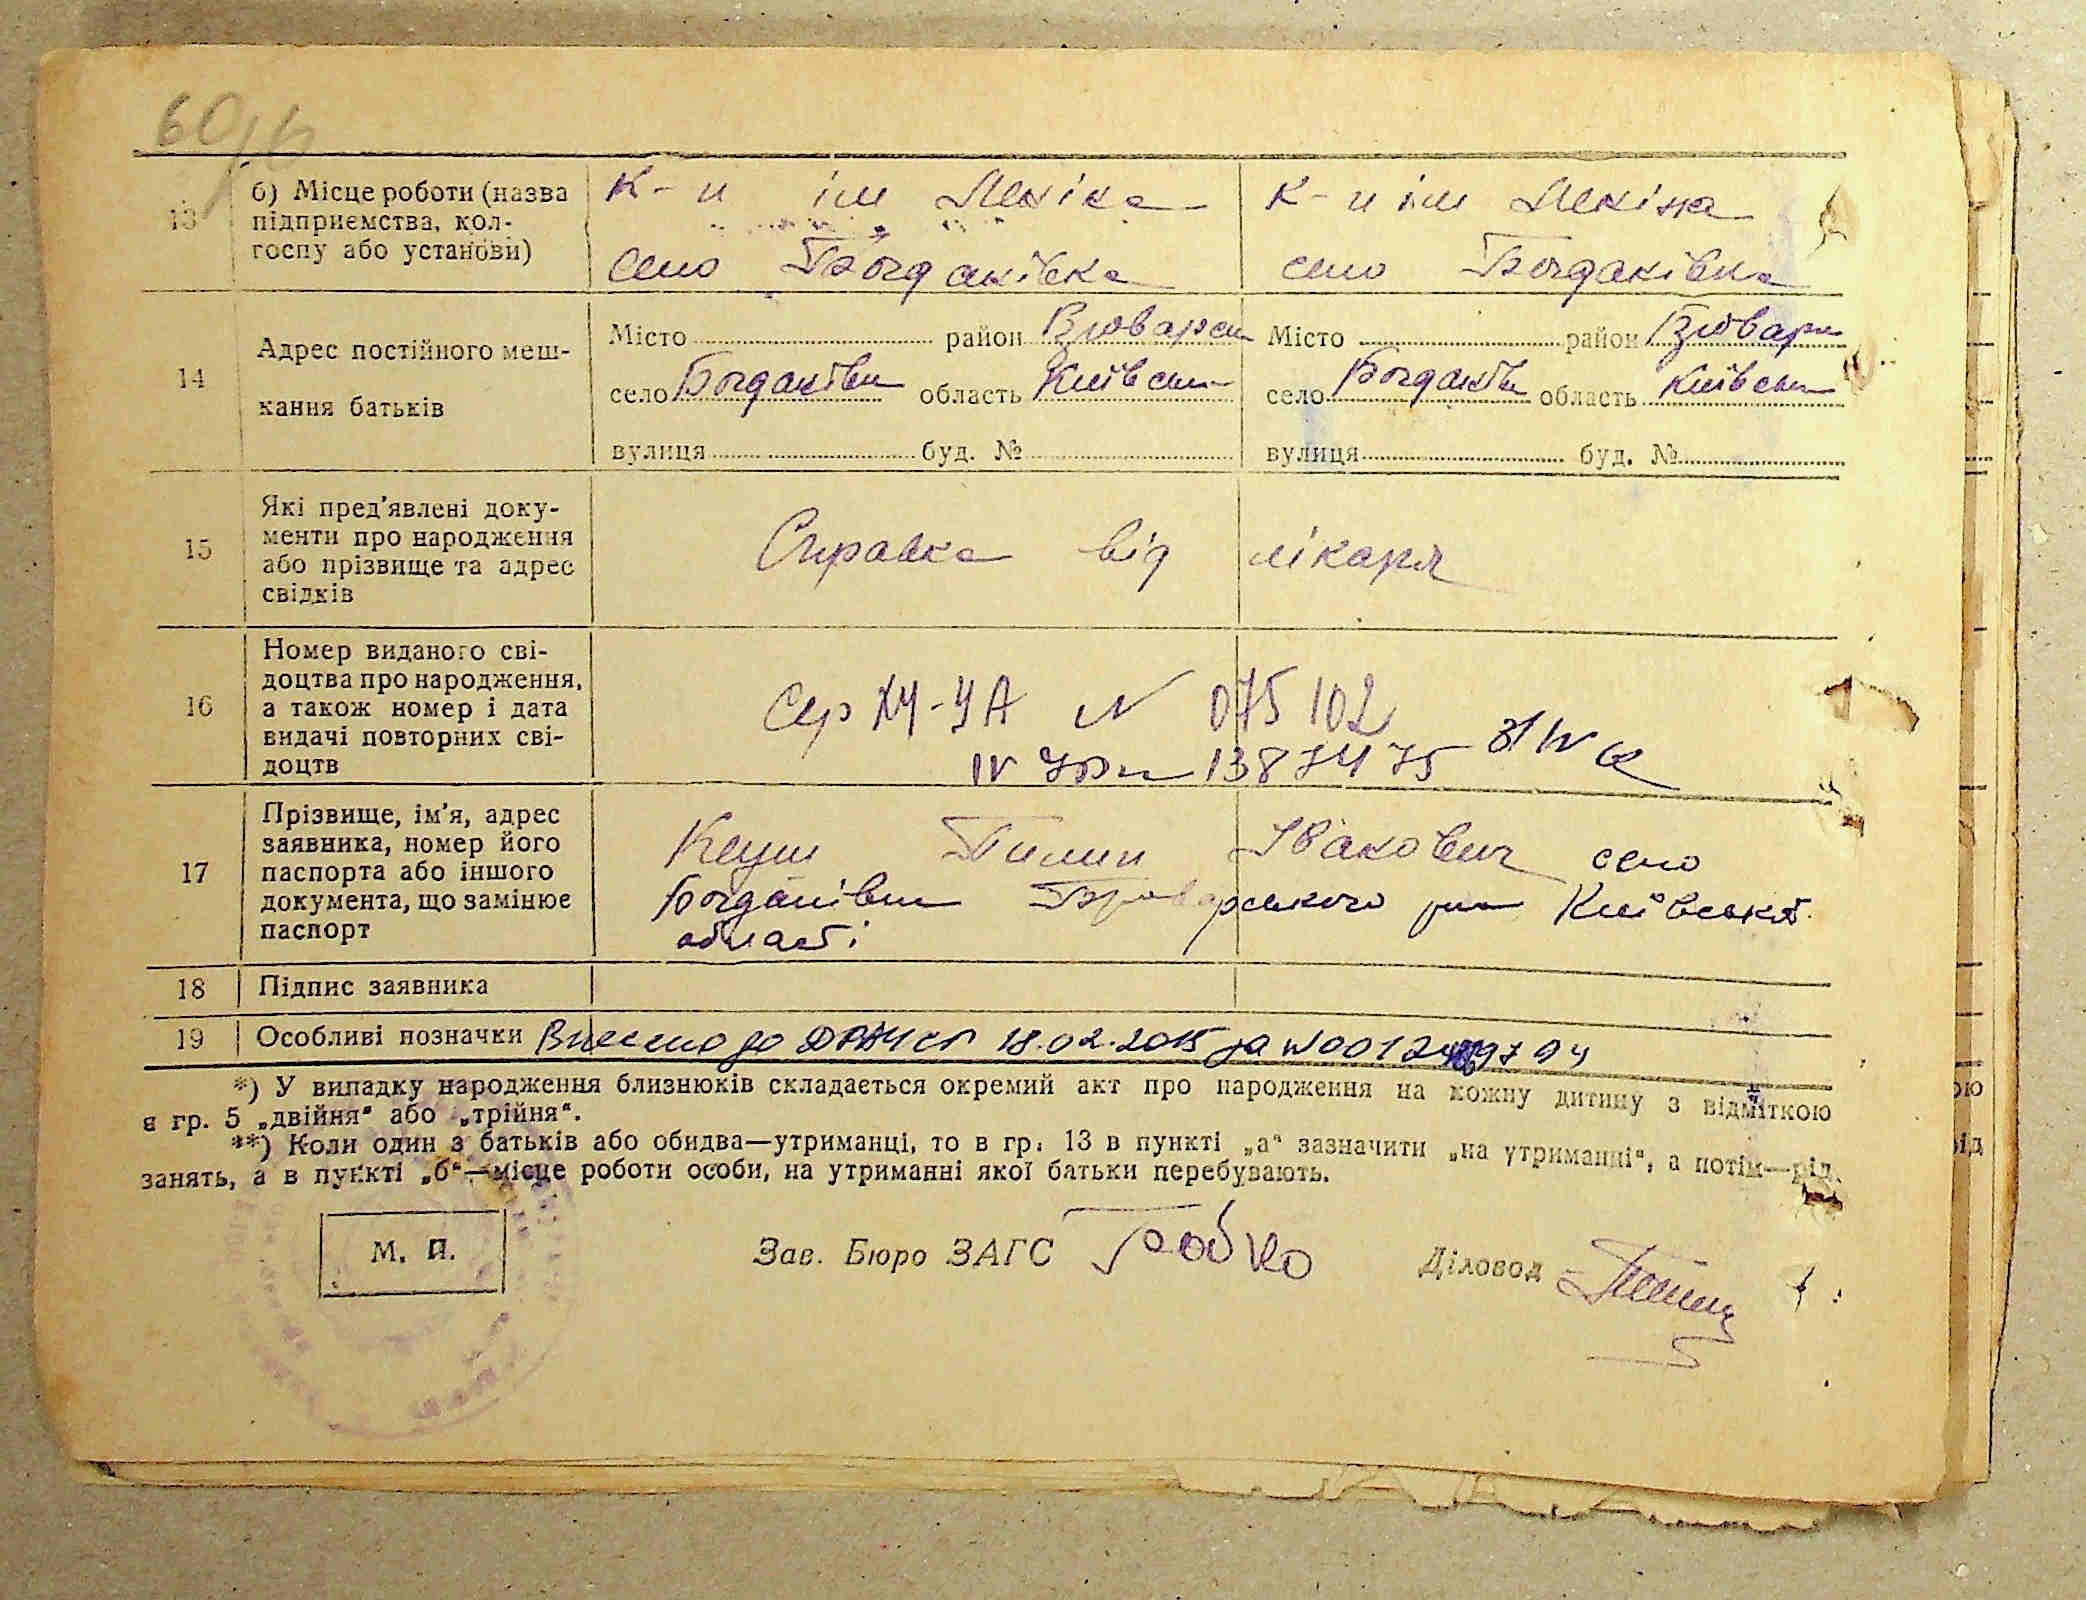 13 б) Місце роботи (назва підприємства, колгоспу або установи)
К-п ім Леніна
село Богданівка
К-п ім Леніна
село Богданівка
14 Адрес постійного мешкання батьків
Місто район Броварськ
село Богданівка область Київськ
вулиця буд. №
Місто район Бровар
село Богданівка область Київськ
вулиця буд. №
15 Які пред'явлені документи про народження або прізвище та адрес свідків
Справка від лікаря
16 Номер виданого свідоцтва про народження, а також номер і дата видачі повторних свідоцтв
N 075102
17 Прізвище, ім'я, адрес заявника, номер його паспорта або іншого документа, що замінює паспорт
Іванович село
Богданівка Броварського р-на Київської
області
18 Підпис заявника
19 Особливі позначки Внесено до ДРАЦСГ 18.02.2015 за N
*) У випадку народження близнюків складається окремий акт про народження на кожну дитину з відміткою
в гр. 5 „двійня“ або „трійня“.
**) Коли один з батьків або обидва—утриманці, то в гр. 13 в пункті „а“ зазначити „на утриманні“, а потім—рід
занять, а в пункті „б“—місце роботи особи, на утриманні якої батьки перебувають.
М. П.
Зав. Бюро ЗАГС
Діловод